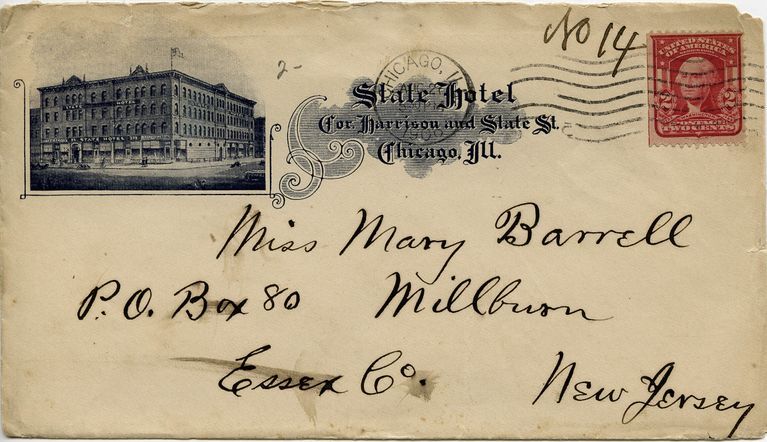 No 14
2-
CHICAGO, I
UNITED STATES
OF AMERICA
2 2
POSTAGE
TWO CENTS
State Hotel
Cor. Harrison and State St.
Chicago, Ill.
Miss Mary Barrell
P.O. Box 80 Millburn
Essex Co. New Jersey